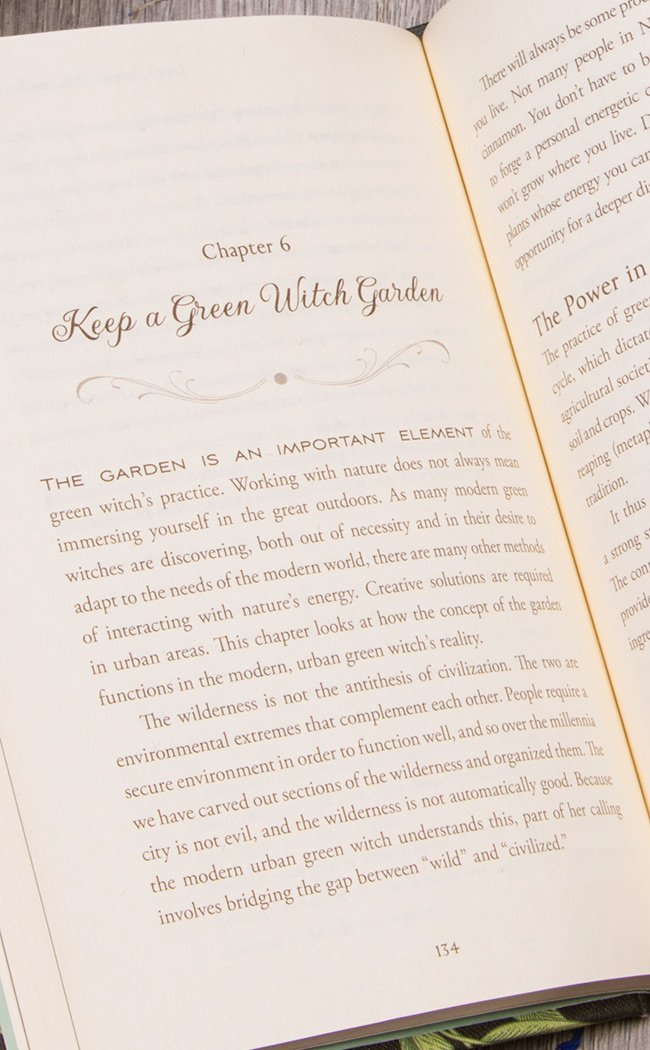 Chapter 6
Keep a Green Witch Garden
THE GARDEN IS AN IMPORTANT ELEMENT of the
green witch's practice. Working with nature does not always mean
immersing yourself in the great outdoors. As many modern green
witches are discovering, both out of necessity and in their desire to
adapt to the needs of the modern world, there are many other methods
of interacting with nature's energy. Creative solutions are required
in urban areas. This chapter looks at how the concept of the garden
functions in the modern, urban green witch's reality.
The wilderness is not the antithesis of civilization. The two are
environmental extremes that complement each other. People require a
secure environment in order to function well, and so over the millennia
we have carved out sections of the wilderness and organized them. The
city is not evil, and the wilderness is not automatically good. Because
the modern urban green witch understands this, part of her calling
involves bridging the gap between "wild" and "civilized."
134
There will always be some
you live. Not many people in
cinnamon. You don't have to
to forge a personal energetic
won't grow where you live.
plants whose energy you can
opportunity for a deeper
The Power in
The practice of
cycle, which
agricultural
soil and crops.
reaping
tradition.
It thus
a strong
The